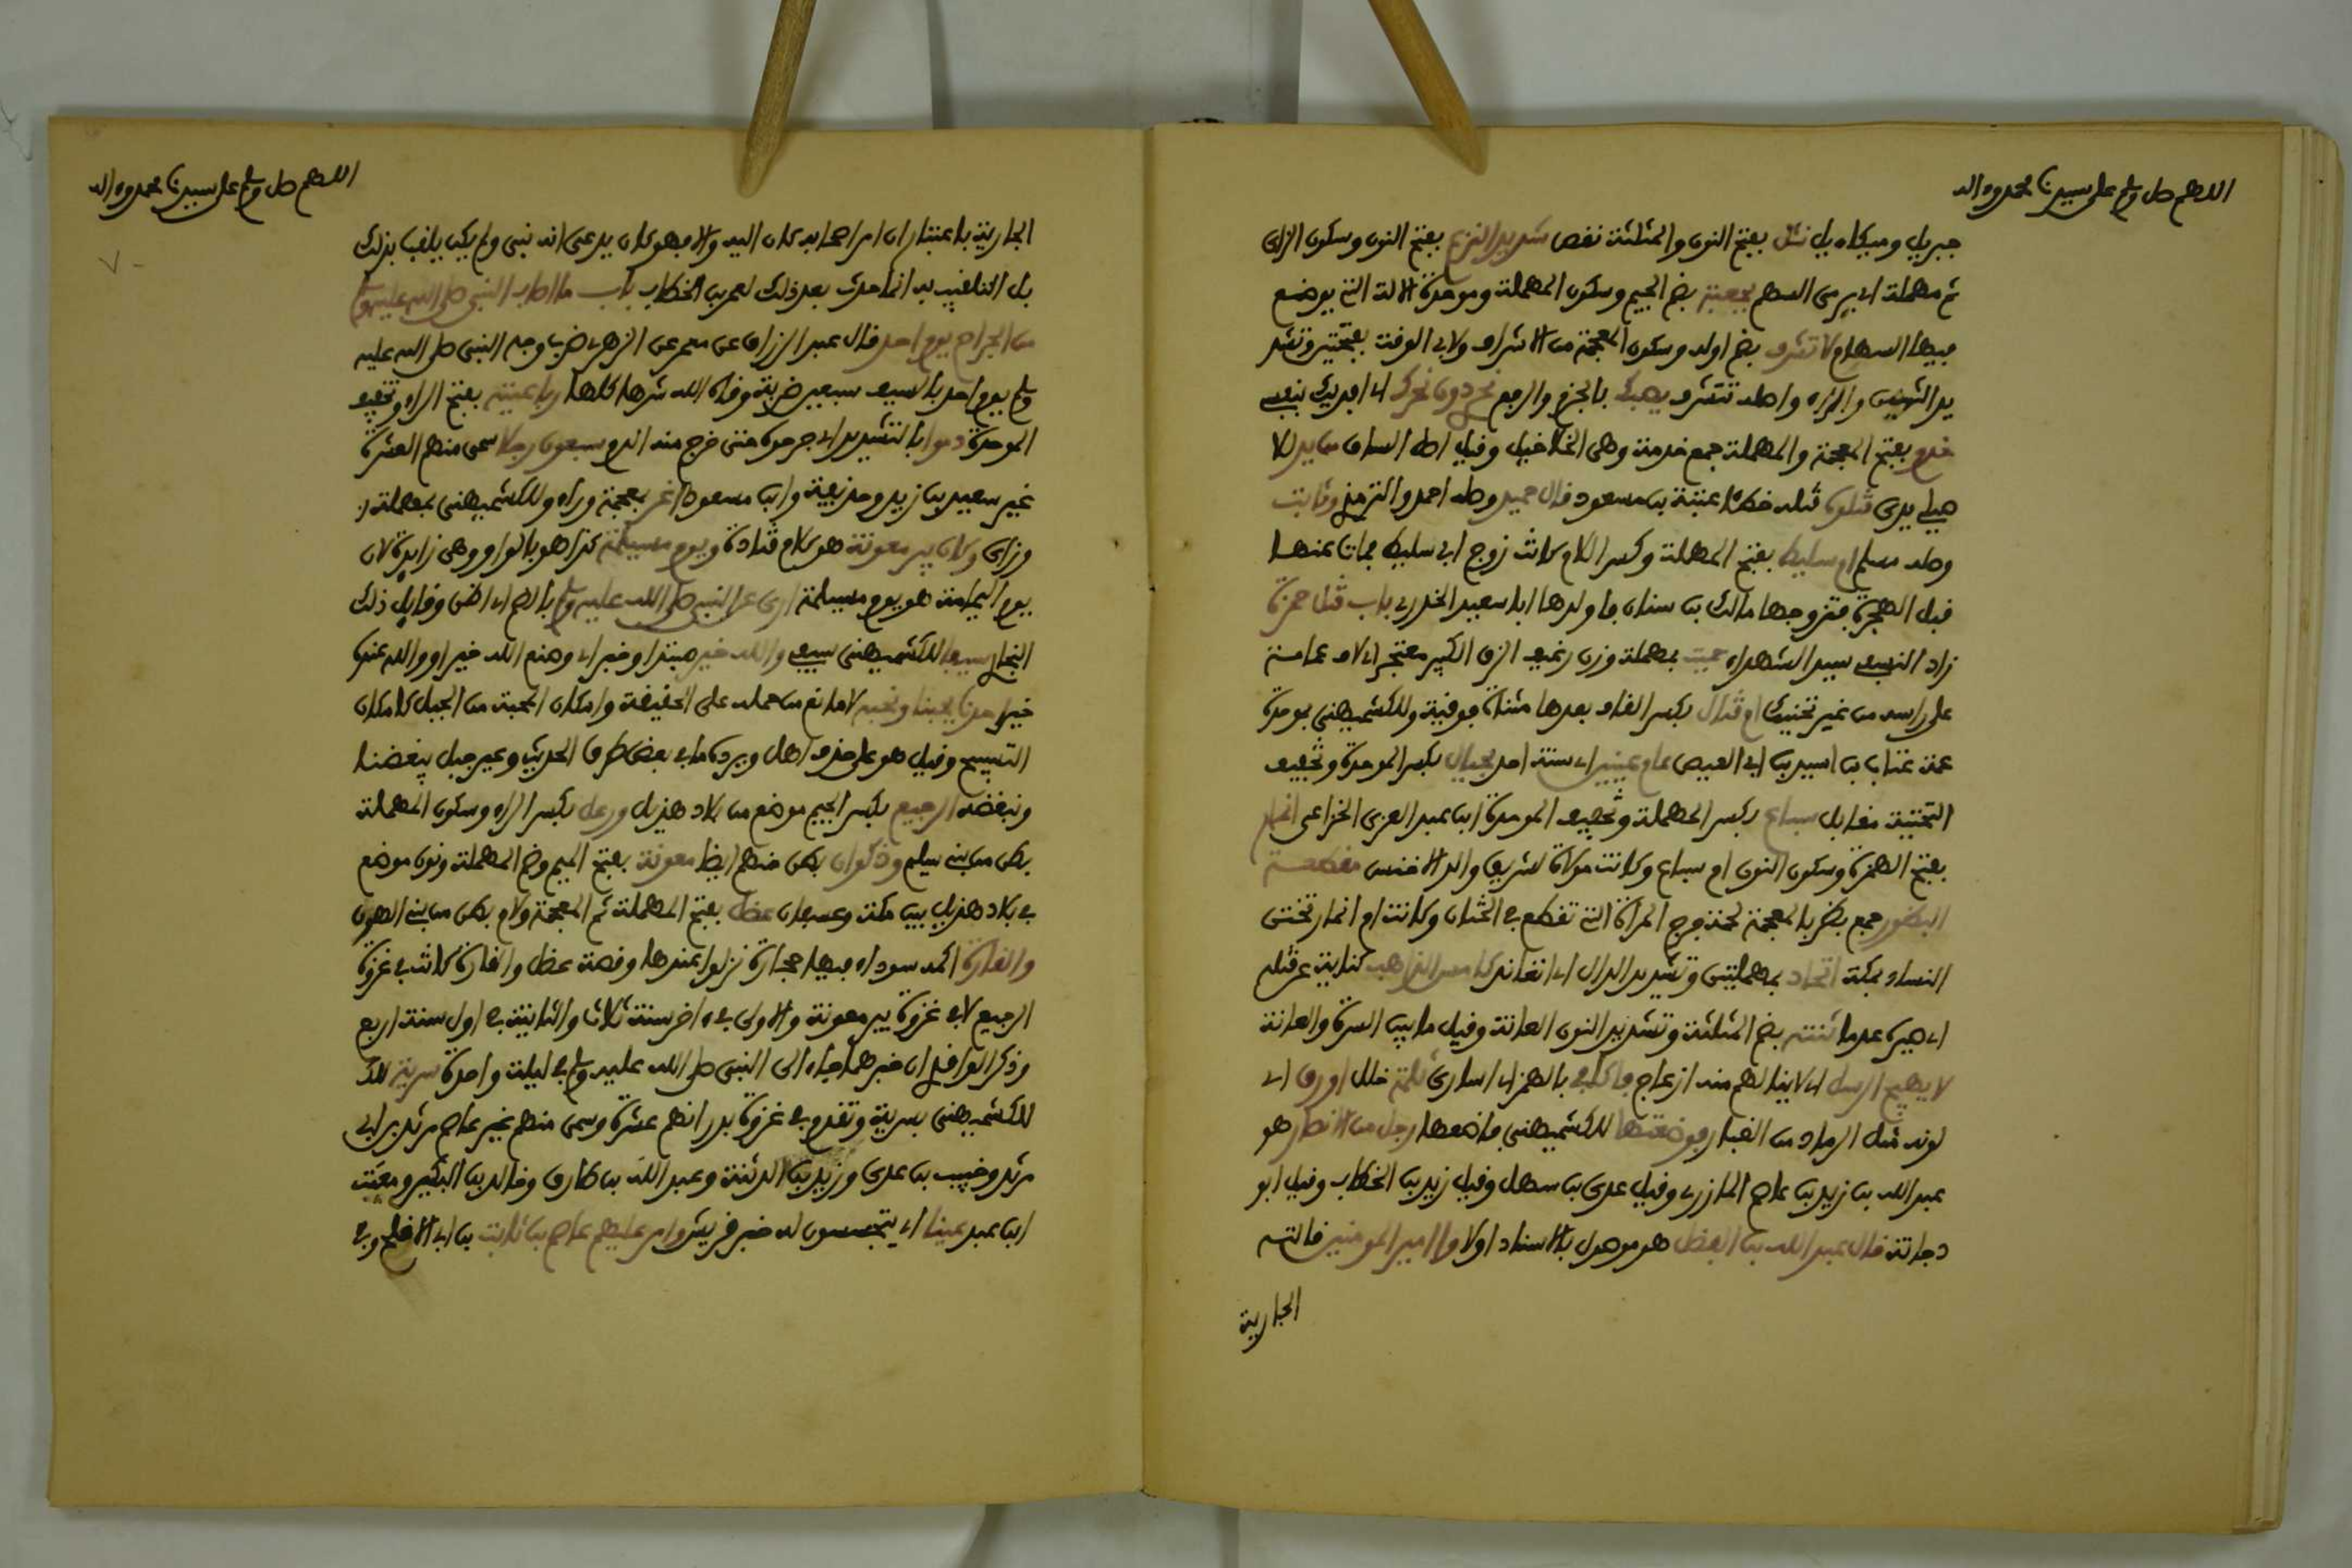 اللهم صل وسلم على سيدنا محمد وءاله
جبريل وميكاءيل نثل بفتح النون والمثلثة نفض شديد النزع بفتح النون وسكون الزاى
ثم مهملة اى رمى السهم بجعبة بضم الجيم وسكون المهملة وموحدة الالة التى يوضع
فيها السهام ولا تشرف بضم اوله وسكون المعجمة من الاشراف ولابى الوقت بفتحتين وتشد
يد الشين والراء واصله تتشرف يصبك بالجزم والرفع نحرى دون نحرك اى افديك بنفسى
خدم بفتح المعجمة والمهملة جمع خدمة وهى الخلاخيل وقيل اصل الساق من يد
قتلوه قتله خطأ عتبة بن مسعود قال حميد وصله احمد والترمذى وثابت
وصله مسلم ام سليط بفتح المهملة وكسر اللام كانت زوج ابى سليط فمات عنها
قبل الهجرة فتزوجها مالك بن سنان فاولدها ابا سعيد الخدرى باب قتل حمزة
زاد النسفى سيد الشهداء حميت بمهملة وزن رغيف الزق الكبير معتجر اى لاف عمامته
على راسه من غير تحنيك ام قتال بكسر القاف بعدها مثناة فوقية وللكشميهنى بموحدة
عمة عتاب بن اسيد بن ابى العيص عام عينين اى سنة احد بحيال بكسر المهملة وتخفيف
التحتية مقابل سباع بكسر المهملة وتخفيف الموحدة ابن عبد العزى الخزاعى انمار
بفتح الهمزة وسكون النون ام سباع وكانت مولاة لشريق والد الاخنس مقطعة
البظور جمع بظر بالمعجمة لحمة فرج المراة التى تقطع فى الختان وكانت ام انمار تختن
النساء بمكة اتحاد بمهملتين وتشديد الدال اى اتعاند كامس الذاهب كناية عن قتله
اى صيره عدما ثنته بضم المثلثة وتشديد النون العانة وقيل ما بين السرة والعانة
لا يهيج الرسل اى لا ينالهم منه ازعاج فاكافى بالهمز اى اساوى ثلمة خلل اورق اى
لونه مثل الرماد من الغبار فوضعتها للكشميهنى فاضعها رجل من الانصار هو
عبد الله بن زيد بن عاصم المازنى وقيل عدى بن سهل وقيل زيد بن الخطاب وقيل ابو
دجانة قال عبد الله بن الفضل هو موصول بالاسناد اولا وا امير المومنين قالته
الجارية
اللهم صل وسلم على سيدنا محمد وءاله
الجارية باعتبار ان امر اصحابه كان اليه والا فهو كان يدعى انه نبى ولم يكن يلقب بذلك
بل التلقيب به انما حدث بعد ذلك لعمر بن الخطاب باب ما اصاب النبى صلى الله عليه وسلم
من الجراح يوم احد قال عبد الرزاق عن معمر عن الزهرى ضرب وجه النبى صلى الله عليه
وسلم يوم احد بالسيف سبعين ضربة وقاه الله شرها كلها رباعيته بفتح الراء وتخفيف
الموحدة دموا بالتشديد اى جرحوه حتى خرج منه الدم سبعون رجلا سمى منهم العشرة
غير سعيد بن زيد وحذيفة وابن مسعود اغر بمعجمة وراء وللكشميهنى بمهملة
وزاى وكان بير معونة هو كلام قتادة ويوم مسيلمة كذا هو بالواو وهى زايدة لان
يوم اليمامة هو يوم مسيلمة ارى عن النبى صلى الله عليه وسلم بالضم اى اظن وقايل ذلك
البخارى سيفا للكشميهنى سيفى والله خير مبتدا وخبر اى وصنع الله خير او والله عنده
خير احد نا يحبنا ونحبه لا مانع من حمله على الحقيقة وامكان المحبة من الجبل كامكان
التسبيح وقيل هو على حذف اهل ويرده ما فى بعض طرق الحديث وعير جبل يبغضنا
ونبغضه الرجيع بكسر الجيم موضع من بلاد هذيل ورعل بكسر الراء وسكون المهملة
بطن من بنى سليم وذكوان بطن منهم ايضا معونة بفتح الميم وضم المهملة ونون موضع
فى بلاد هذيل بين مكة وعسفان عضل بفتح المهملة ثم المعجمة ولام بطن من بنى الهون
والقارة اكمة سوداء فيها حجارة نزلوا عندها وقصة عضل والقارة كانت فى غزوة
الرجيع لا فى غزوة بير معونة والاولى فى ءاخر سنة ثلاث والثانية فى اول سنة اربع
وذكر الواقدى ان خبرهما جاء الى النبى صلى الله عليه وسلم فى ليلة واحدة سرية
للكشميهنى بسرية وتقدم فى غزوة بدر انهم عشرة وسمى منهم غير عاصم مرثد بن ابى
مرثد وخبيب بن عدى وزيد بن الدثنة وعبد الله بن طارق وخالد بن البكير ومعتب
ابن عبيد عينا اى يتجسسون له خبر قريش وامر عليهم عاصم بن ثابت بن ابى الاقلح وفى